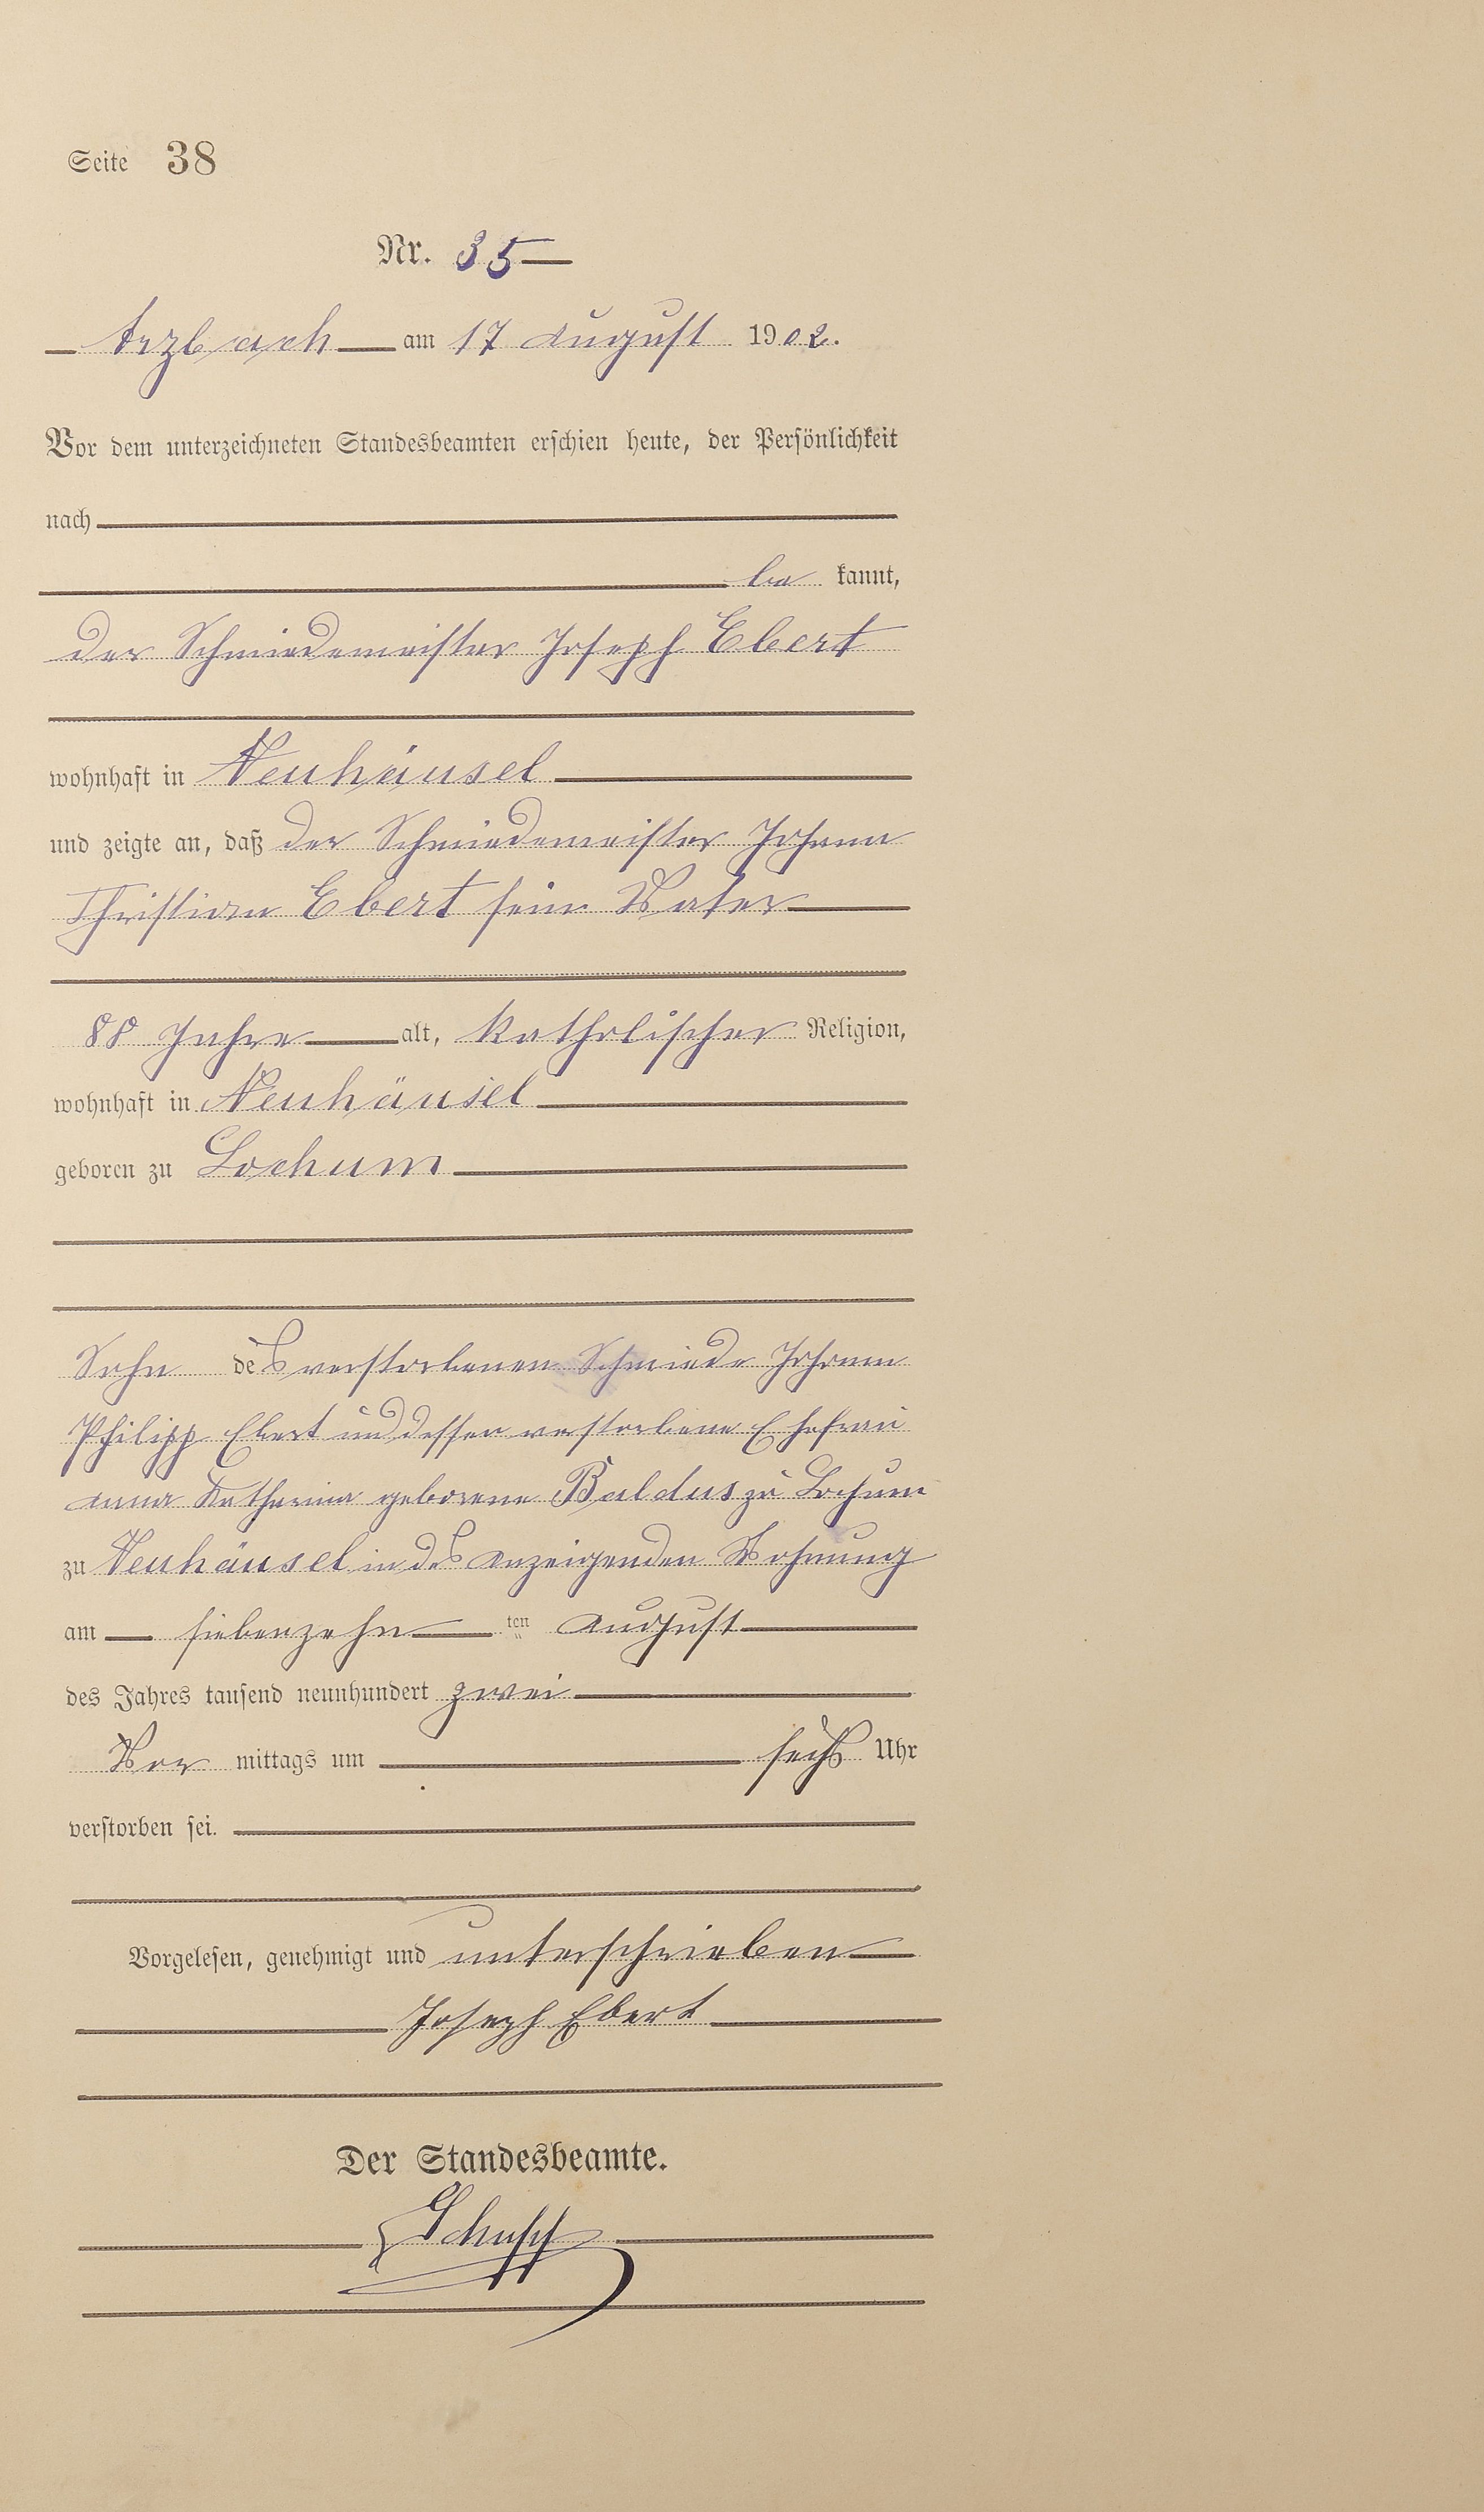 Seite 38
Nr. 35
Arzbach am 17 August 1902.
Vor dem unterzeichneten Standesbeamten erschien heute, der Persönlichkeit
nach
be kannt,
der Schmiedemeister Joseph Ebert
wohnhaft in Neuhäusel
und zeigte an, daß der Schmiedemeister Johann
Christian Ebert sein Vater
88 Jahre alt, katholischer Religion,
wohnhaft in Neuhäusel
geboren zu Lochum
Sohn des verstorbenen Schmiede Johann
Philipp Ebert und dessen verstorbene Ehefrau
Anna Katharina geborene Baldus zu Lochum
zu Neuhäusel in des Anzeigenden Wohnung
am siebenzehn ten August
des Jahres tausend neunhundert zwei
Vor mittags um sechs Uhr
verstorben sei.
Vorgelesen, genehmigt und unterschrieben
Joseph Ebert
Der Standesbeamte.
Schupp